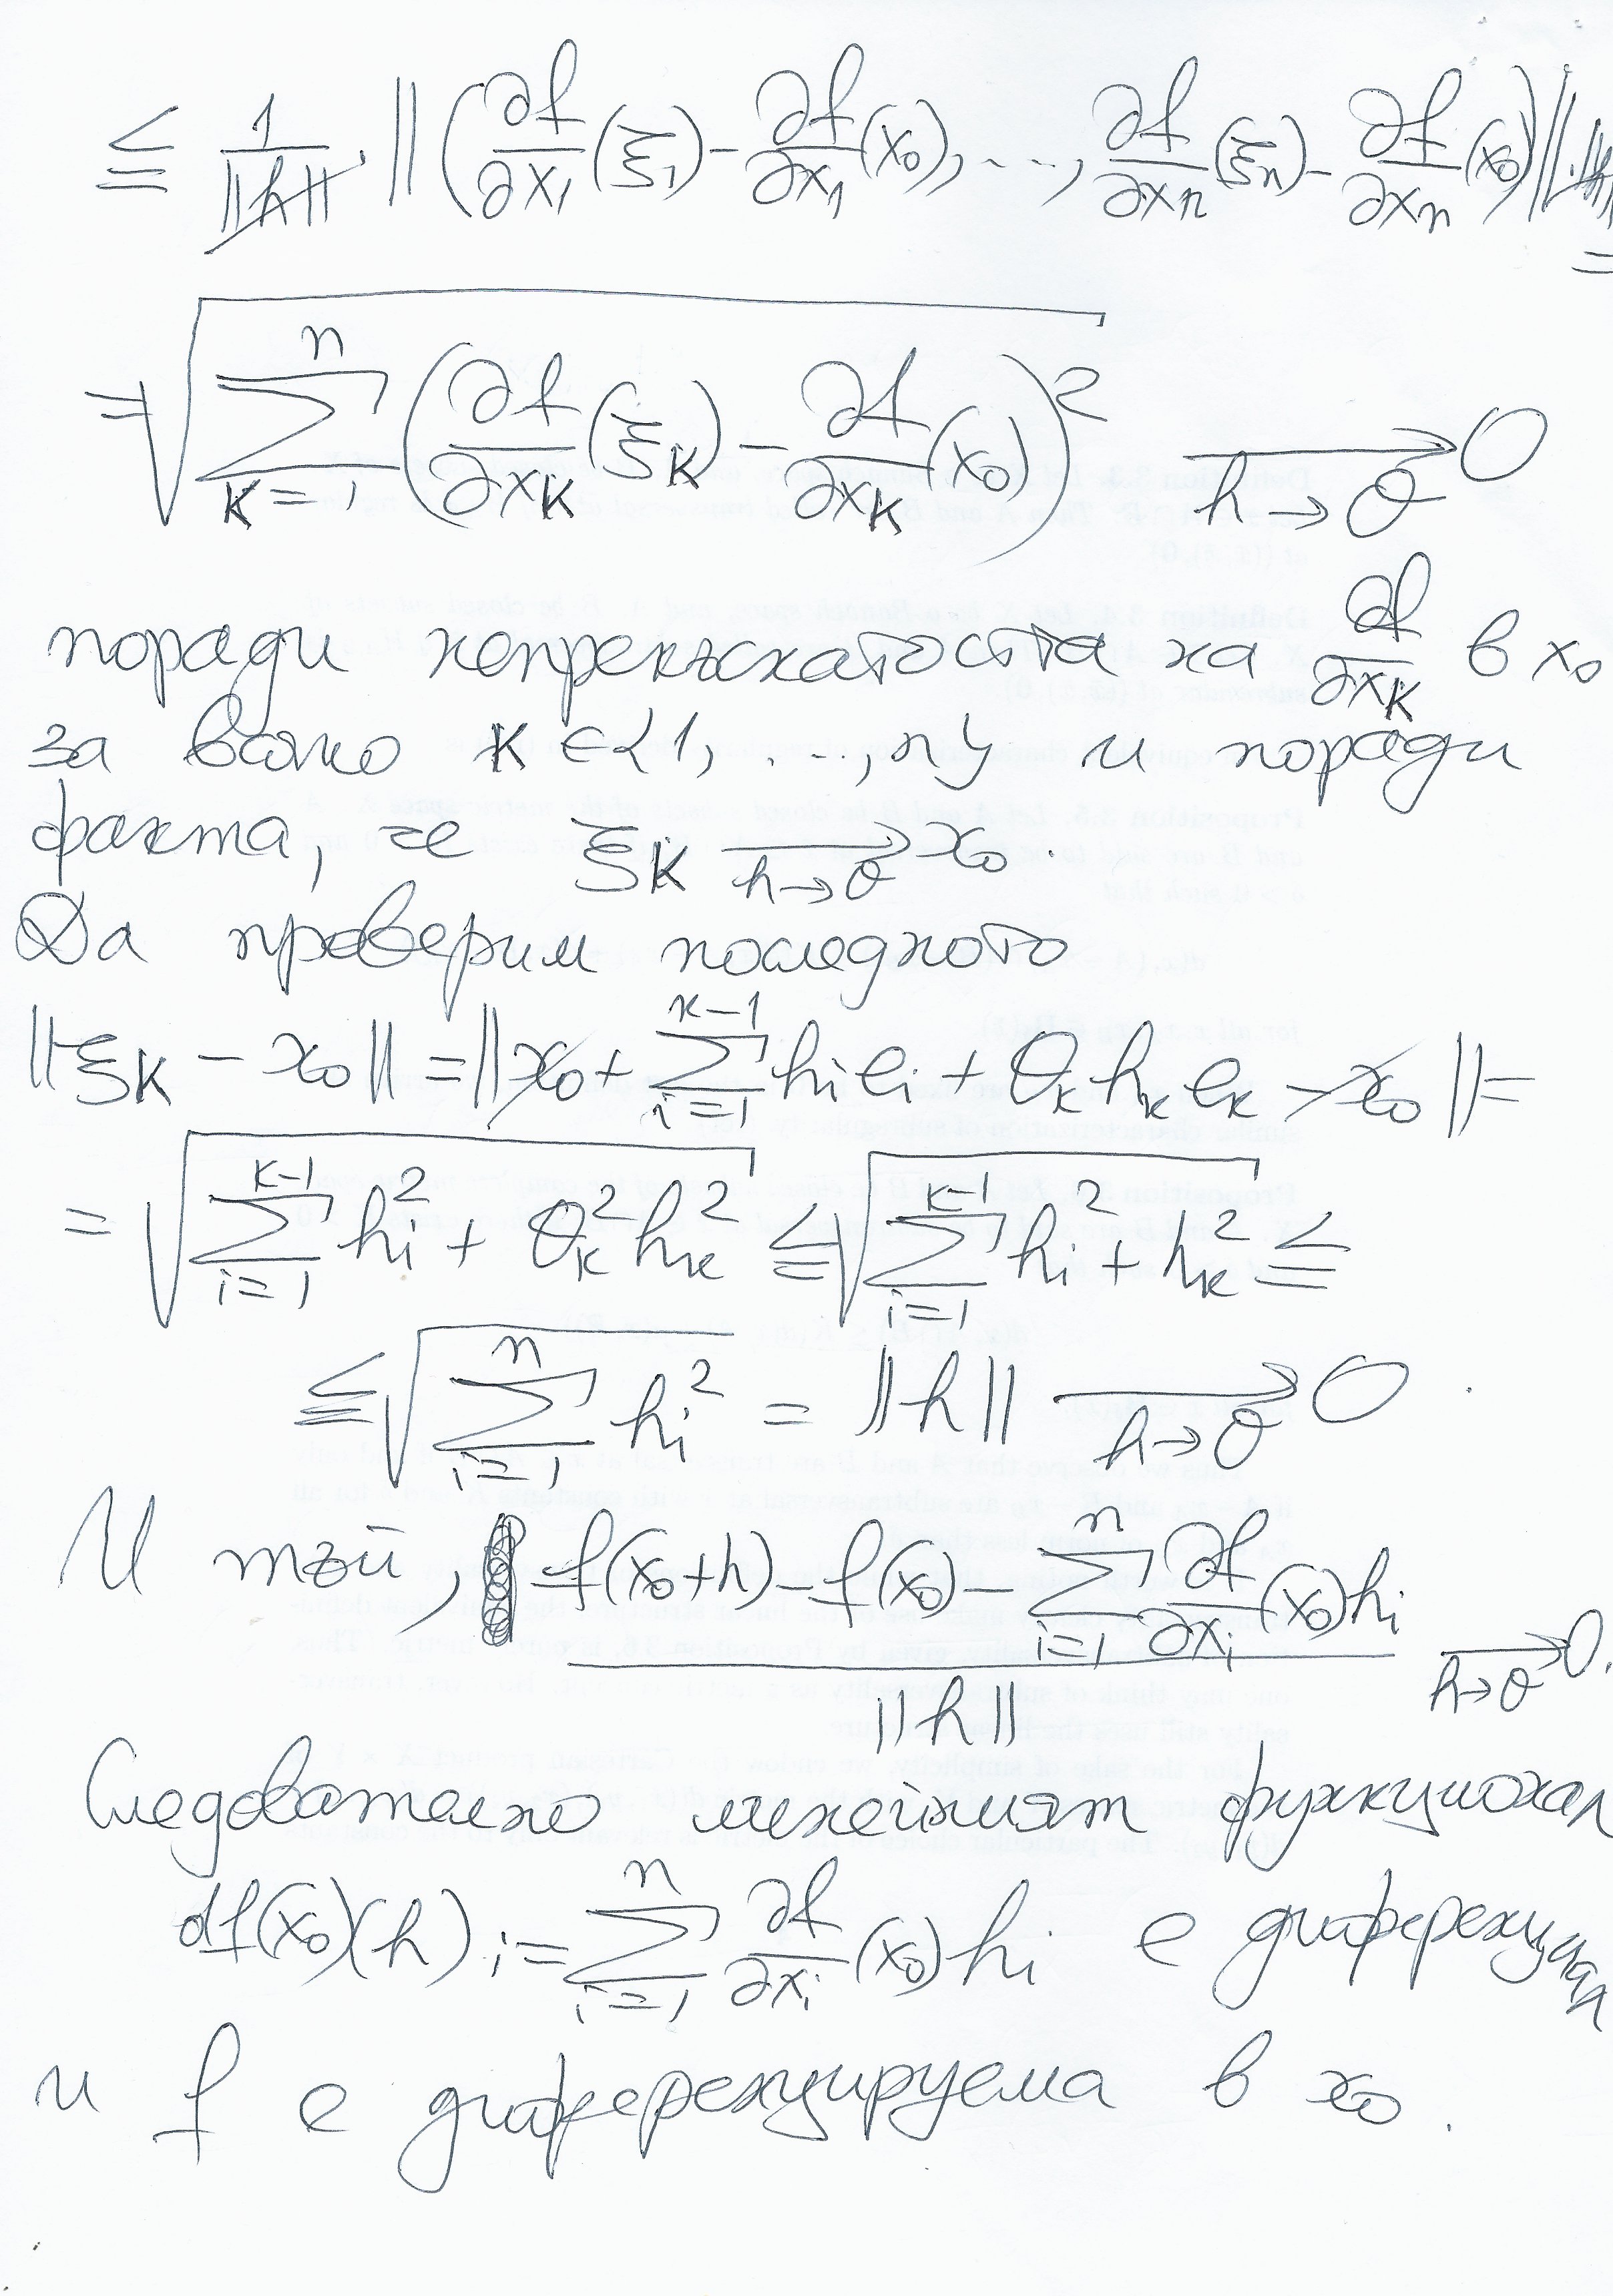 ≤ 1/||h|| · || (∂f/∂x₁(ξ₁) − ∂f/∂x₁(x₀), ..., ∂f/∂xₙ(ξₙ) − ∂f/∂xₙ(x₀)) || · ||h|| =
= √(∑_{k=1}^{n} (∂f/∂x_k(ξ_k) − ∂f/∂x_k(x₀))²) →_{h→θ} 0
поради непрекъснатостта на ∂f/∂x_k в x₀
за всяко k ∈ {1, ..., n} и поради
факта, че ξ_k →_{h→θ} x₀.
Да проверим последното
||ξ_k − x₀|| = ||x₀ + ∑_{i=1}^{k−1} hᵢeᵢ + θ_k h_k e_k − x₀|| =
= √(∑_{i=1}^{k−1} hᵢ² + θ_k² h_k²) ≤ √(∑_{i=1}^{k−1} hᵢ² + h_k²) ≤
≤ √(∑_{i=1}^{n} hᵢ²) = ||h|| →_{h→θ} 0.
И тъй, (f(x₀+h) − f(x₀) − ∑_{i=1}^{n} ∂f/∂xᵢ(x₀)hᵢ) / ||h|| →_{h→θ} 0.
Следователно линейният функционал
df(x₀)(h) := ∑_{i=1}^{n} ∂f/∂xᵢ(x₀)hᵢ е диференциал
и f е диференцируема в x₀.